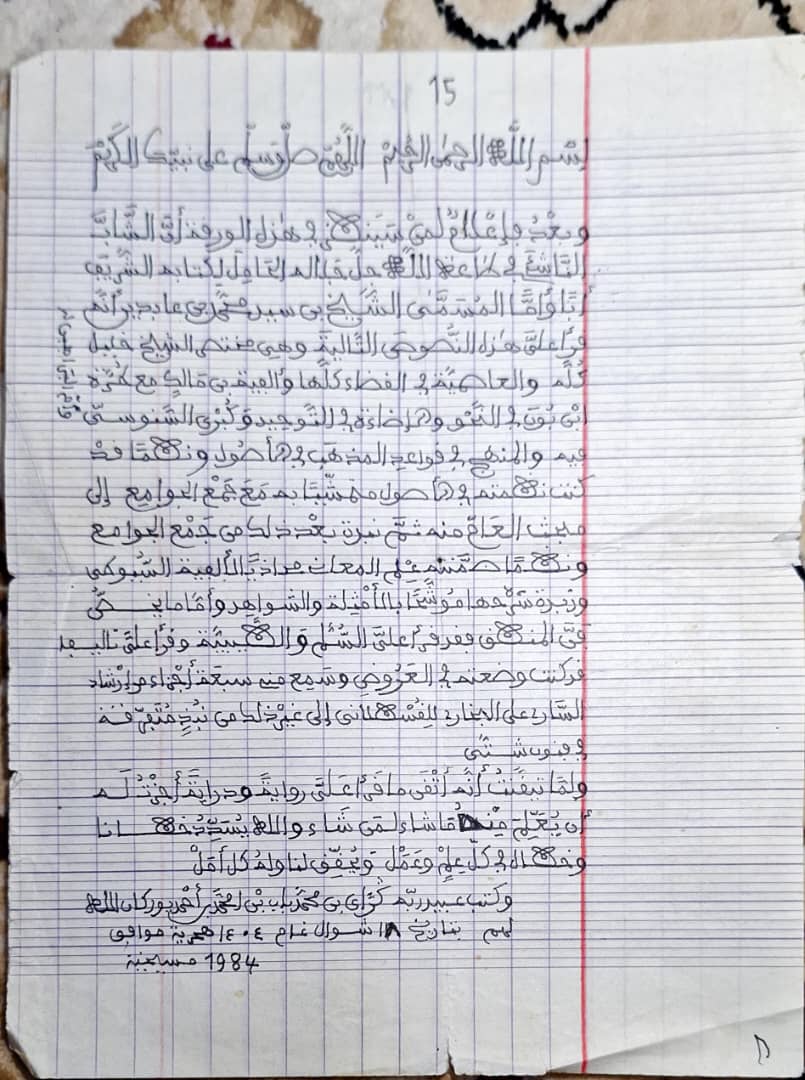 15
بسم الله الرحمن الرحيم اللهم صل وسلم على نبيك الكريم
وبعد فإعلام لمن سينظر في هذه الورقة أن الشاب
الناشئ في طاعة الله جل جلاله الحامل لكتابه الشريف
أبا وأما المسمى الشيخ بن سيد محمد بن عابدين أنه
قرأ علي هذه النصوص التالية وهي مختصر الشيخ خليل
كله والعاصمية في القضاء كلها وألفية بن مالك مع طرة
ابن بون في النحو وإضاءة في التوحيد وكبرى السنوسي
فيه والمنهج في قواعد المذهب في الأصول ونظما قد
كنت نظمته في الأصول متشبثا به مع جمع الجوامع إلى
مبحث العام منه ثم نبذة بعد ذلك من جمع الجوامع
ونظما ضمنته علم المعاني محاذيا الألفية السيوطي
وزبدة شرحها موشحا بالأمثلة والشواهد وأما ما يخص
فن المنطق فقد قرأ علي السلم والطيبية وقرأ علي تأليف
قد كنت وضعته في العروض وسمع مني سبعة أجزاء من إرشاد
الساري على البخاري للقسطلاني إلى غير ذلك من نبذ متفرقة
في فنون شتى
ولما تيقنت أنه أتقن ما قرأ علي رواية ودراية أجزت له
أن يعلم منه ما شاء لمن شاء والله يسدد خطانا
وخطاه في كل علم وعمل ويحقق لنا وله كل أمل
وكتب عبيد ربه كراي بن محمد باب بن أحمد بن أحمد يوركان الله
لهم بتاريخ ١٨ شوال عام ١٤٠٤ هجرية موافق
1984 مسيحية